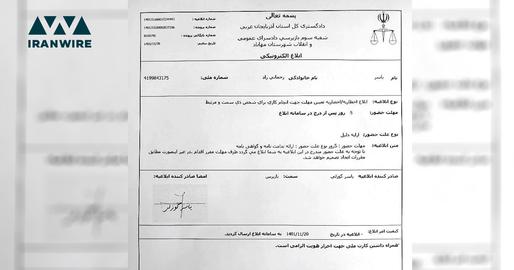 IRANWIRE
بسمه تعالی
دادگستری کل استان آذربایجان غربی
شعبه سوم بازپرسی دادسرای عمومی
و انقلاب شهرستان مهاباد
ابلاغ الکترونیکی
شماره ابلاغیه:
شماره پرونده:
تاریخ تنظیم:
نام یاسر نام خانوادگی رحمانی راد شماره ملی:
نوع ابلاغیه: ابلاغ اخطاریه/احضاریه تعیین مهلت جهت انجام کاری برای شخص ذی سمت و مرتبط
مهلت حضور: 5 روز پس از درج در سامانه ابلاغ
نوع علت حضور: ارائه دلیل
متن ابلاغیه:
با توجه به علت حضور مندرج در این ابلاغیه به شما ابلاغ می گردد ظرف مهلت مقرر اقدام، در غیر اینصورت مطابق
مقررات اتخاذ تصمیم خواهد شد.
صادر کننده ابلاغیه یاسر گورلی سمت: بازپرس امضا صادر کننده ابلاغیه
کیفیت امر ابلاغ: - ابلاغیه در تاریخ 1401/11/20 به سامانه ابلاغ ارسال گردید.
همراه داشتن کارت ملی جهت احراز هویت الزامی است.